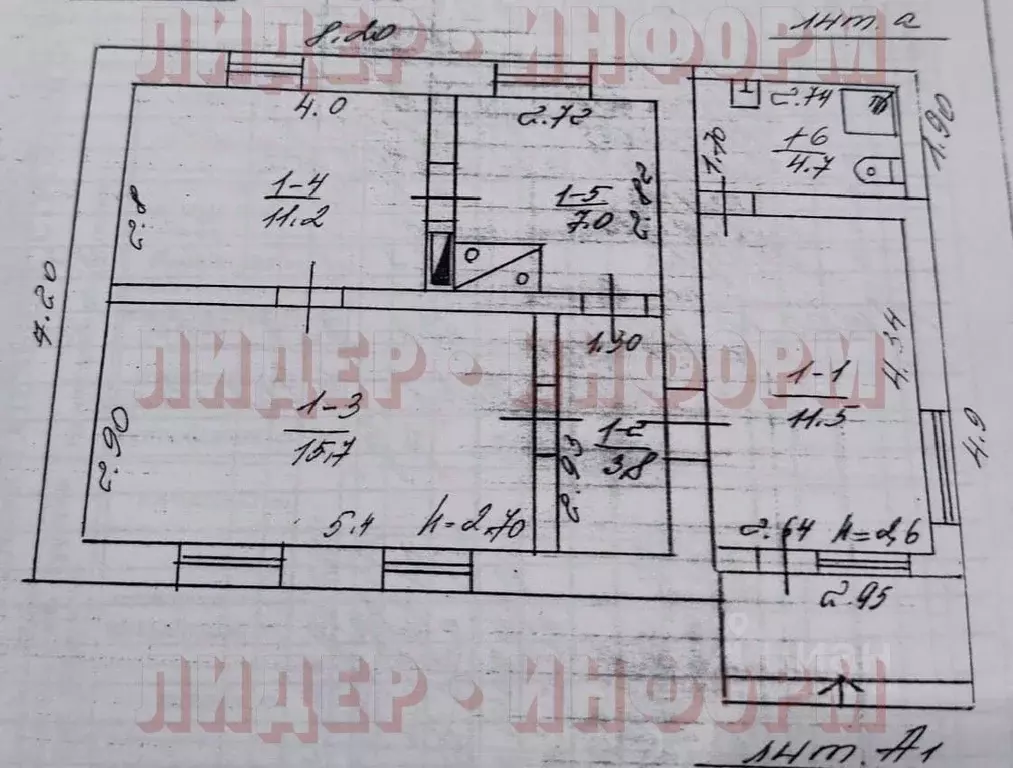 лит. а
8.20
ЛИДЕР • ИНФОРМ
4.0
2.72
2.74
1-6
4.7
1.70
1.90
1-4
11.2
2.8
1-5
7.0
2.82
4.34
1.30
ЛИДЕР • ИНФОРМ
1-1
11.5
1-3
15.7
2.90
1-2
3.8
2.93
4.9
5.4
h=2,70
2.64
h=2,6
2.95
ЛИДЕР • ИНФОРМ
лит. А1